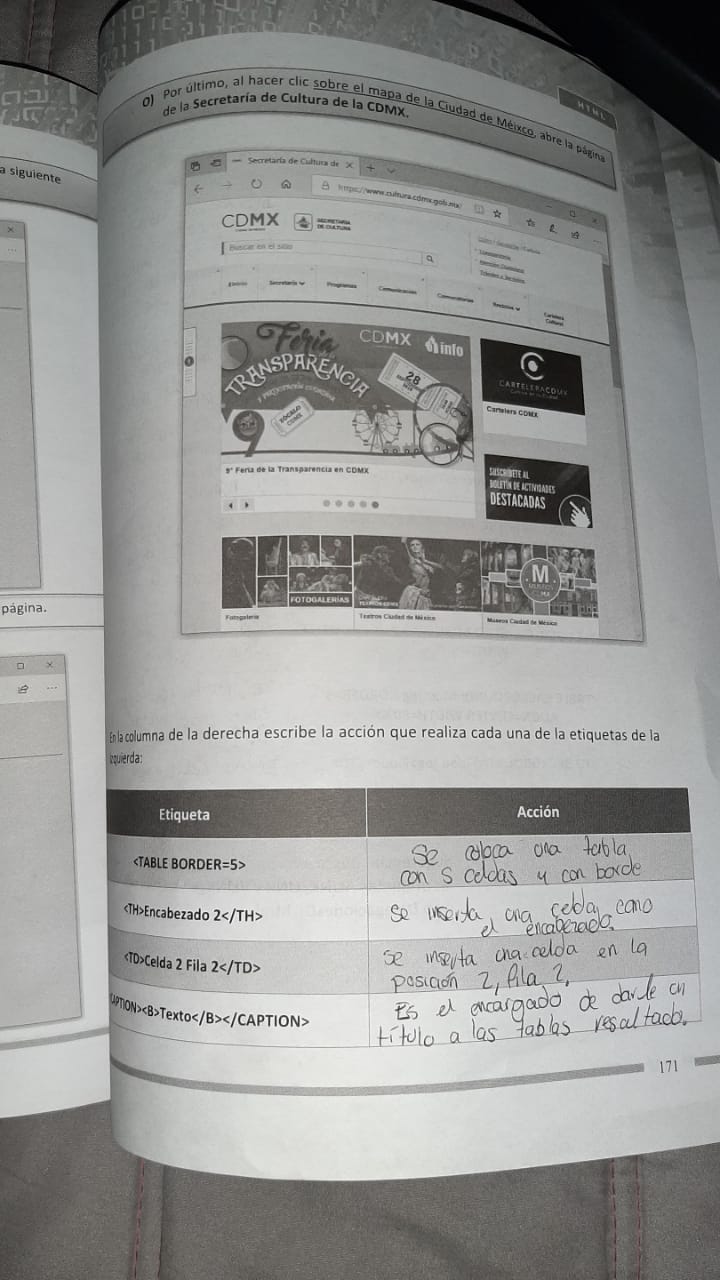 HTML
O) Por último, al hacer clic sobre el mapa de la Ciudad de Méixco, abre la página
de la Secretaría de Cultura de la CDMX.
a siguiente
Secretaría de Cultura de
https://www.cultura.cdmx.gob.mx/
CDMX
SECRETARÍA
DE CULTURA
Buscar en el sitio
Inicio Secretaría Programas Comunicación Convocatorias Cartelera
Cultural
Feria
TRANSPARENCIA
Y PARTICIPACIÓN CIUDADANA
CDMX info
28
ZÓCALO
CDMX
9
9ª Feria de la Transparencia en CDMX
CARTELERACDMX
Cartelera CDMX
SUSCRÍBETE AL
BOLETÍN DE ACTIVIDADES
DESTACADAS
FOTOGALERÍAS
M
MUSEOS
Fotogalería Teatros Ciudad de México Museos Ciudad de México
página.
En la columna de la derecha escribe la acción que realiza cada una de la etiquetas de la
izquierda:
Etiqueta Acción
<TABLE BORDER=5>
Se coloca una tabla
con 5 celdas y con borde
<TH>Encabezado 2</TH>
Se inserta una celda como
el encabezado.
<TD>Celda 2 Fila 2</TD>
Se inserta una celda en la
posición 2, fila 2.
APTION><B>Texto</B></CAPTION>
Es el encargado de darle un
título a las tablas resaltado.
171